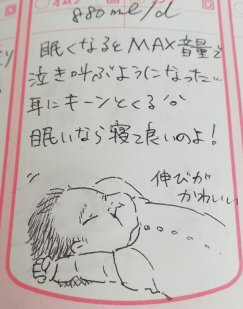 880ml/d
眠くなるとMAX音量で
泣き叫ぶようになった…
耳にキーンとくる
眠いなら寝て良いのよ!
伸びが
かわいい